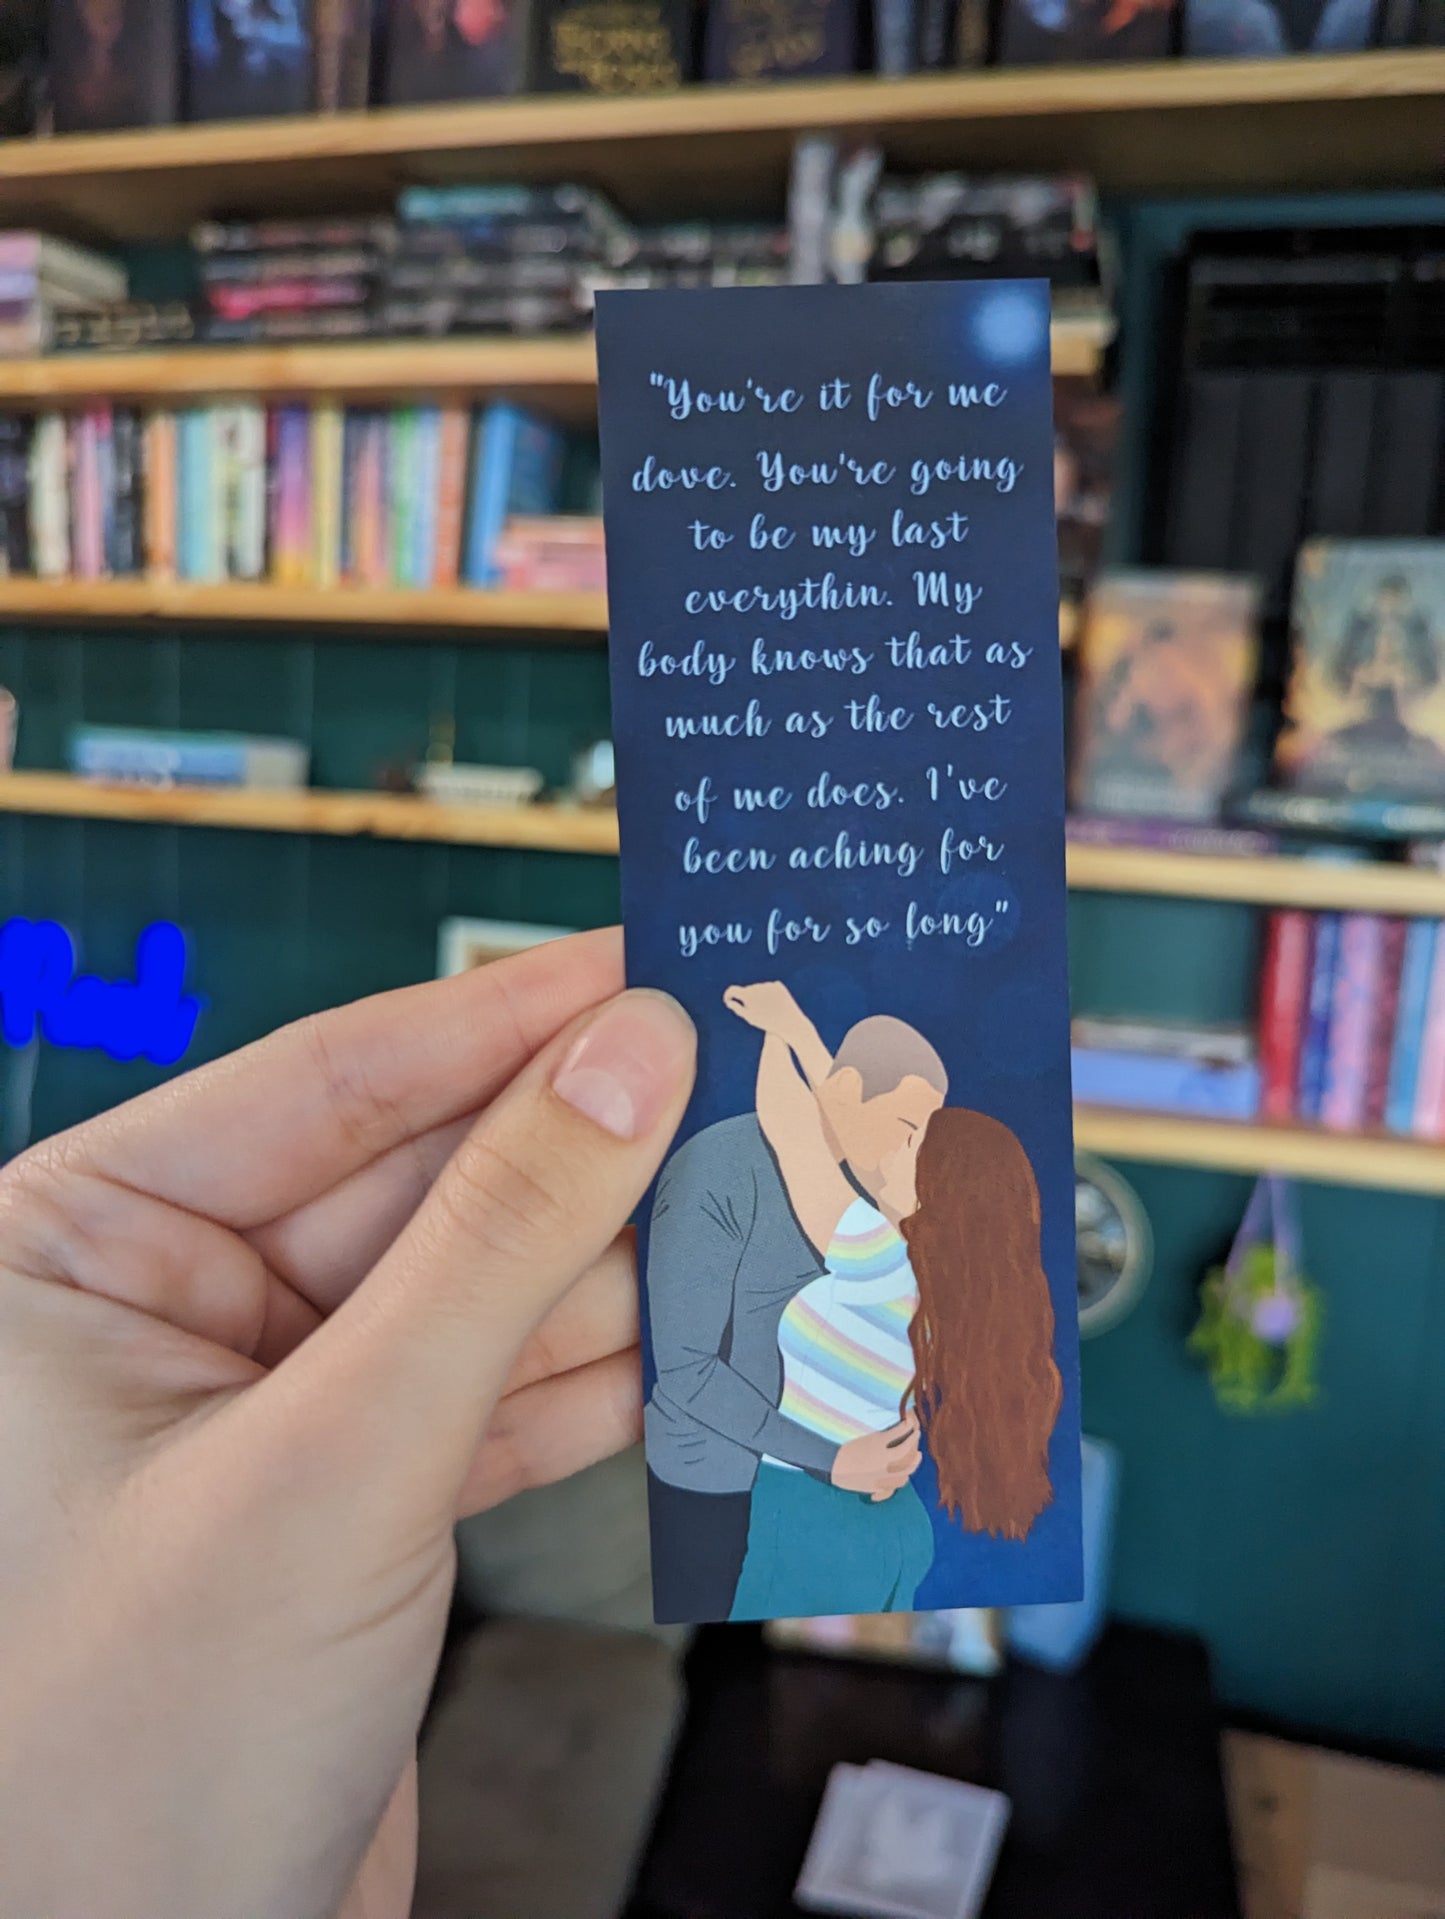 "You're it for me
dove. You're going
to be my last
everythin. My
body knows that as
much as the rest
of me does. I've
been aching for
you for so long"